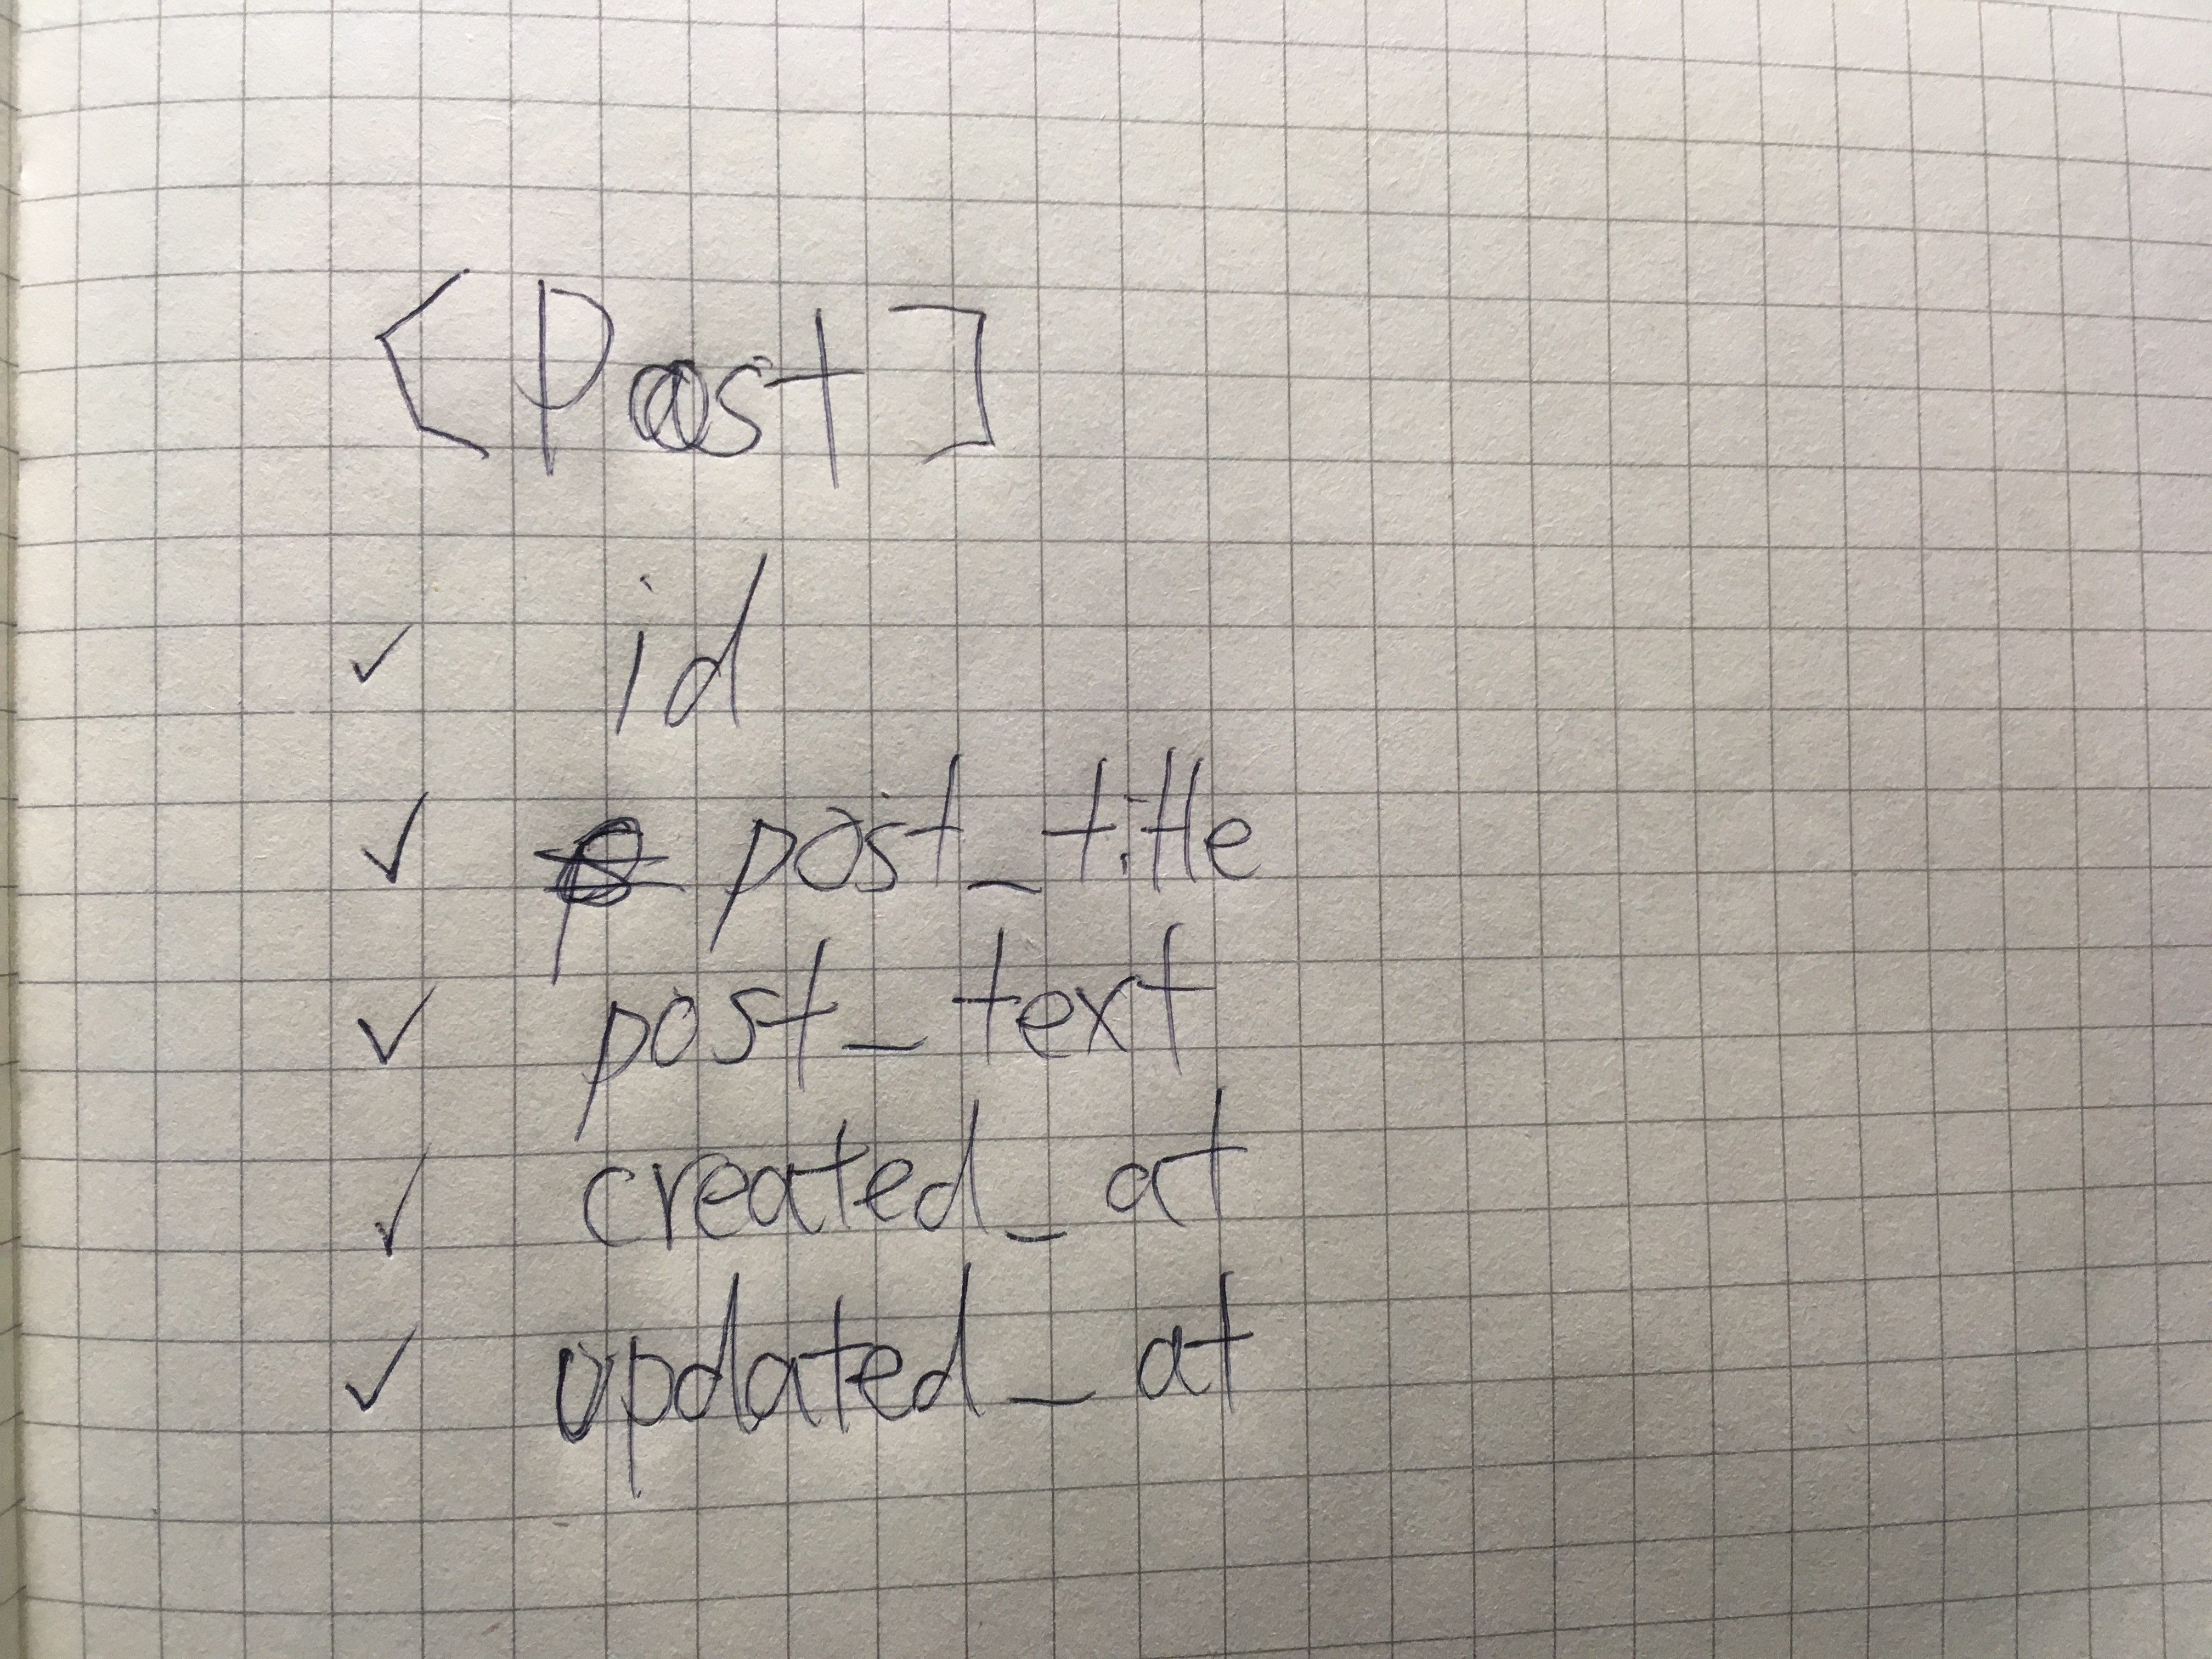 <Post]
✓ id
✓ post_title
✓ post_text
✓ created_at
✓ updated_at